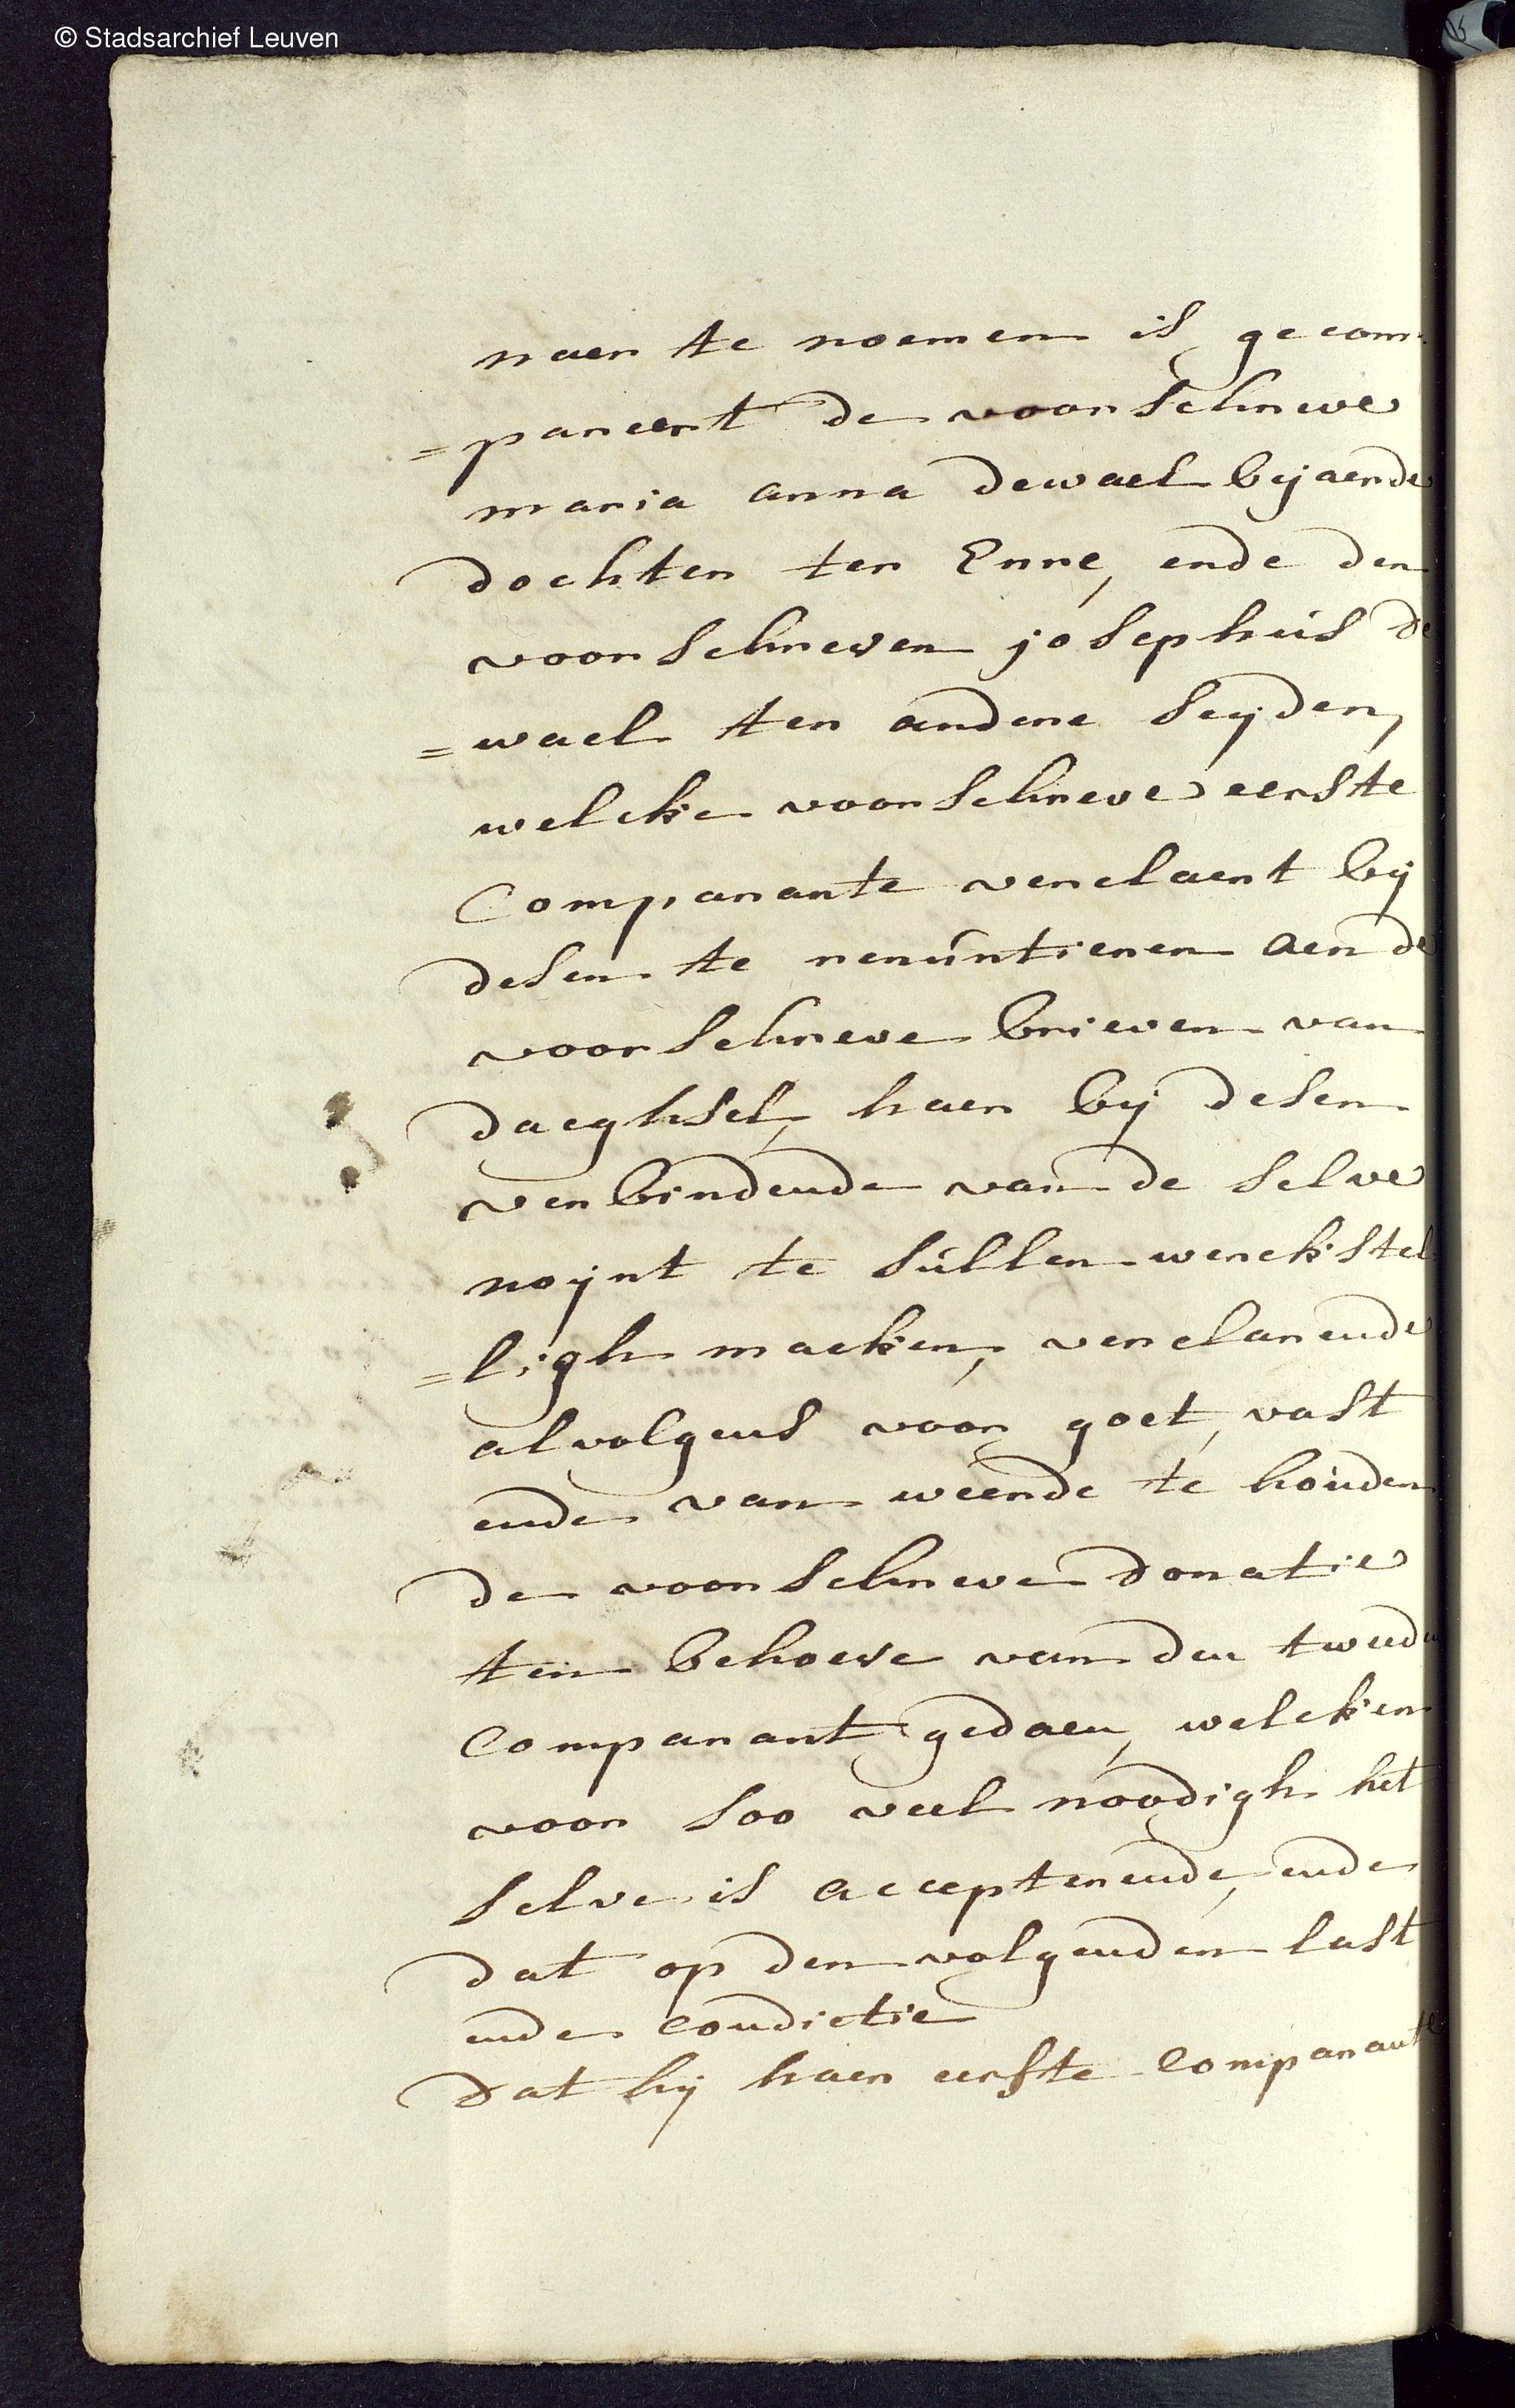 © Stadsarchief Leuven
naer te noemen is gecom¬
=pareert de voorschreve
maria anna dewael bejaerde
dochter ter Enre, ende den
voorschreven josephus de
=wael ter andere seyden,
welcke voorschreve eerste
Comparante verclaert by
desen te renuntieren aen de
voorschreve brieven van
daeghsel, haer by desen
verbindende van de selve
noynt te sullen werckstel
=ligh maeken, verclarende
alvolgens voor goet, vast
ende van weerde te houden
de voorschreve donatie
ten behoeve van den tweeden
Comparant gedaen, welcken
voor soo veel noodigh het
selve is accepterende, ende
dat op den volgenden last
ende condictie
dat hy haer eerste Comparante